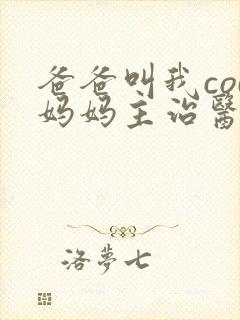 爸爸叫我co
妈妈主治醫
洛夢七